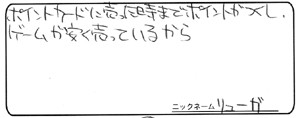 ポイントカードに売った時までポイントが入し、
ゲームが安く売っているから
ニックネーム リューガ